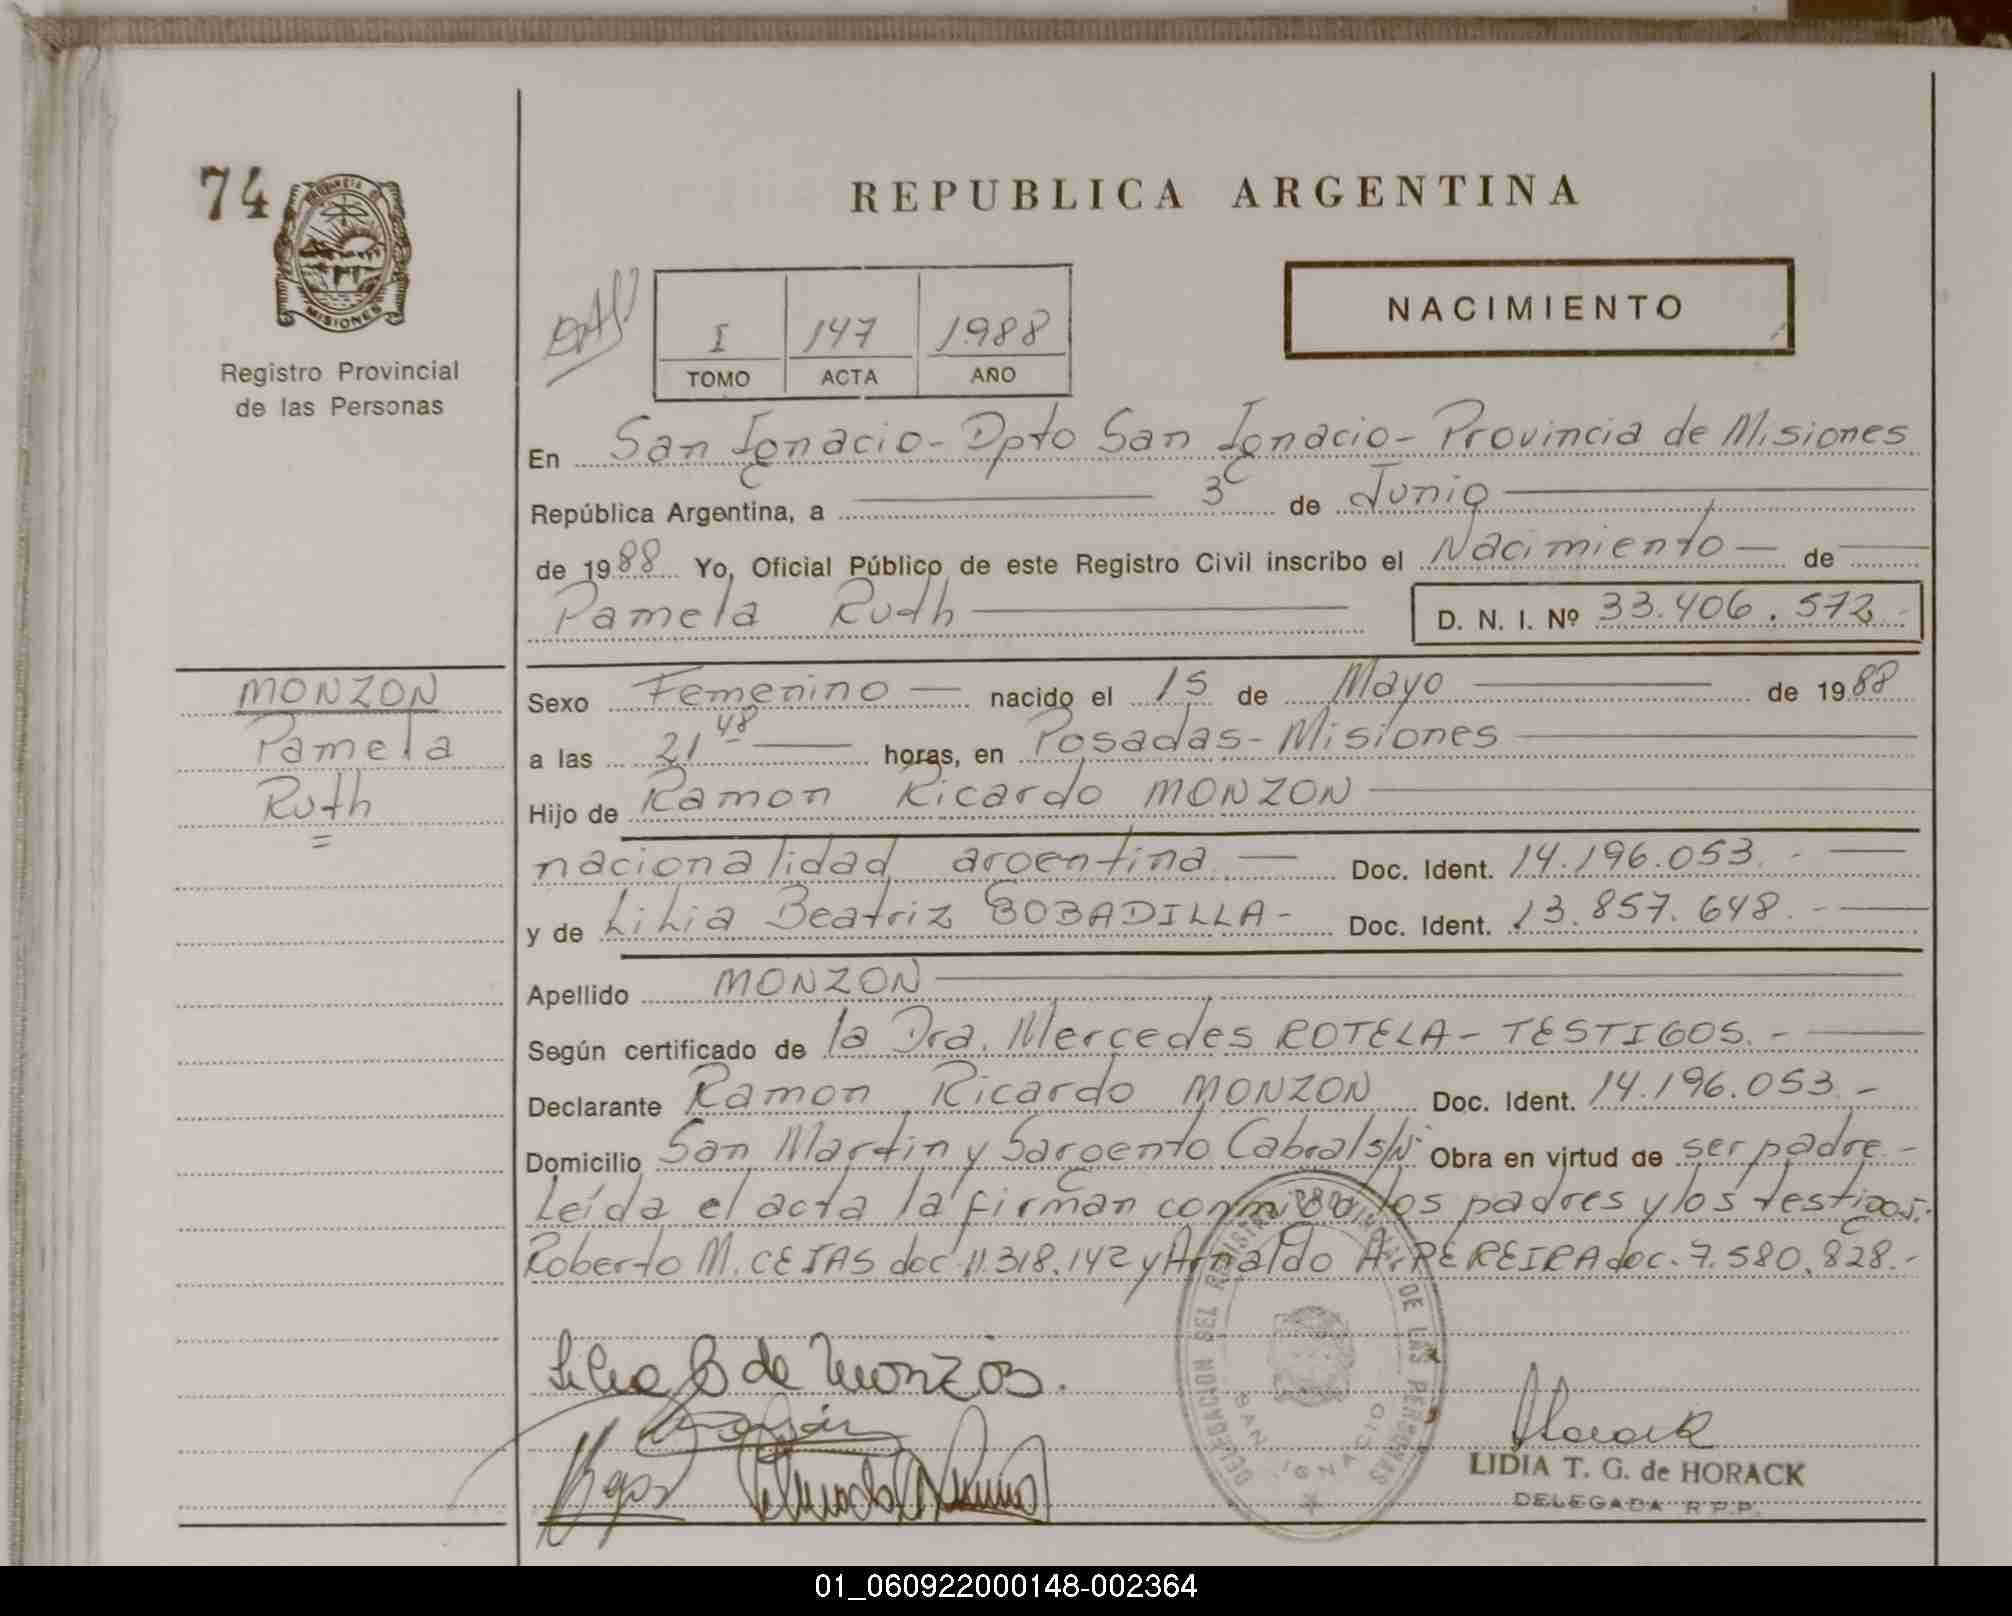 74
PROVINCIA DE
MISIONES
Registro Provincial
de las Personas
REPUBLICA ARGENTINA
I 147 1988
TOMO ACTA AÑO
NACIMIENTO
En San Ignacio - Dpto San Ignacio - Provincia de Misiones
República Argentina, a 3 de Junio
de 1988 Yo, Oficial Público de este Registro Civil inscribo el Nacimiento — de
Pamela Ruth D. N. I. Nº 33.406.572 -
MONZON
Pamela
Ruth
Sexo Femenino — nacido el 15 de Mayo de 1988
a las 21 48 horas, en Posadas - Misiones
Hijo de Ramon Ricardo MONZON
nacionalidad argentina — Doc. Ident. 14.196.053. -
y de Lilia Beatriz BOBADILLA - Doc. Ident. 13.857.648. -
Apellido MONZON
Según certificado de la Dra. Mercedes ROTELA - TESTIGOS. -
Declarante Ramon Ricardo MONZON Doc. Ident. 14.196.053. -
Domicilio San Martin y Sargento Cabral s/N Obra en virtud de ser padre. -
Leída el acta la firman conmigo los padres y los testigos:
Roberto M. CEJAS doc. 11.318.142 y Arnaldo A. PEREIRA doc. 7.580.828. -
Lilia B de Monzón.
DELEGACION DEL REGISTRO PROVINCIAL DE LAS PERSONAS
SAN IGNACIO
Horack
LIDIA T. G. de HORACK
DELEGADA R.P.P.
01_060922000148-002364